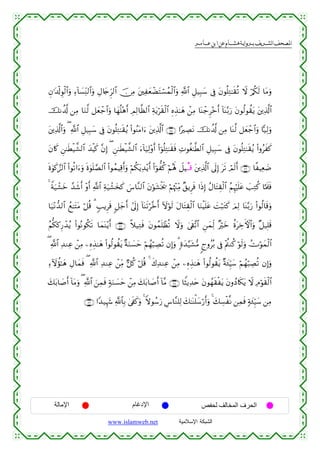 المصحف الشريف برواية هشام عن ابن عامر
وَمَا لَكُمْ لَا تُقَٰتِلُونَ فِى سَبِيلِ ٱللَّهِ وَٱلْمُسْتَضْعَفِينَ مِنَ ٱلرِّجَالِ وَٱلنِّسَآءِ وَٱلْوِلْدَٰنِ
ٱلَّذِينَ يَقُولُونَ رَبَّنَآ أَخْرِجْنَا مِنْ هَٰذِهِ ٱلْقَرْيَةِ ٱلظَّالِمِ أَهْلُهَا وَٱجْعَل لَّنَا مِن لَّدُنكَ
وَلِيًّا وَٱجْعَل لَّنَا مِن لَّدُنكَ نَصِيرًا ٱلَّذِينَ ءَامَنُوا۟ يُقَٰتِلُونَ فِى سَبِيلِ ٱللَّهِ وَٱلَّذِينَ
كَفَرُوا۟ يُقَٰتِلُونَ فِى سَبِيلِ ٱلطَّٰغُوتِ فَقَٰتِلُوٓا۟ أَوْلِيَآءَ ٱلشَّيْطَٰنِ إِنَّ كَيْدَ ٱلشَّيْطَٰنِ كَانَ
ضَعِيفًا أَلَمْ تَرَ إِلَى ٱلَّذِينَ قِيلَ لَهُمْ كُفُّوٓا۟ أَيْدِيَكُمْ وَأَقِيمُوا۟ ٱلصَّلَوٰةَ وَءَاتُوا۟ ٱلزَّكَوٰةَ
فَلَمَّا كُتِبَ عَلَيْهِمُ ٱلْقِتَالُ إِذَا فَرِيقٌ مِّنْهُمْ يَخْشَوْنَ ٱلنَّاسَ كَخَشْيَةِ ٱللَّهِ أَوْ أَشَدَّ خَشْيَةً
وَقَالُوا۟ رَبَّنَا لِمَ كَتَبْتَ عَلَيْنَا ٱلْقِتَالَ لَوْلَآ أَخَّرْتَنَآ إِلَىٰٓ أَجَلٍ قَرِيبٍ قُلْ مَتَٰعُ ٱلدُّنْيَا
قَلِيلٌ وَٱلْءَاخِرَةُ خَيْرٌ لِّمَنِ ٱتَّقَىٰ وَلَا تُظْلَمُونَ فَتِيلًا أَيْنَمَا تَكُونُوا۟ يُدْرِككُّمُ
ٱلْمَوْتُ وَلَوْ كُنتُمْ فِى بُرُوجٍ مُّشَيَّدَةٍ وَإِن تُصِبْهُمْ حَسَنَةٌ يَقُولُوا۟ هَٰذِهِۦ مِنْ عِندِ ٱللَّهِ
وَإِن تُصِبْهُمْ سَيِّئَةٌ يَقُولُوا۟ هَٰذِهِۦ مِنْ عِندِكَ قُلْ كُلٌّ مِّنْ عِندِ ٱللَّهِ فَمَالِ هَٰٓؤُلَآءِ
ٱلْقَوْمِ لَا يَكَادُونَ يَفْقَهُونَ حَدِيثًا مَّآ أَصَابَكَ مِنْ حَسَنَةٍ فَمِنَ ٱللَّهِ وَمَآ أَصَابَكَ
مِن سَيِّئَةٍ فَمِن نَّفْسِكَ وَأَرْسَلْنَٰكَ لِلنَّاسِ رَسُولًا وَكَفَىٰ بِٱللَّهِ شَهِيدًا
الحرف المخالف لحفص الإدغام الإمالة
www.islamweb.net الشبكة الإسلامية